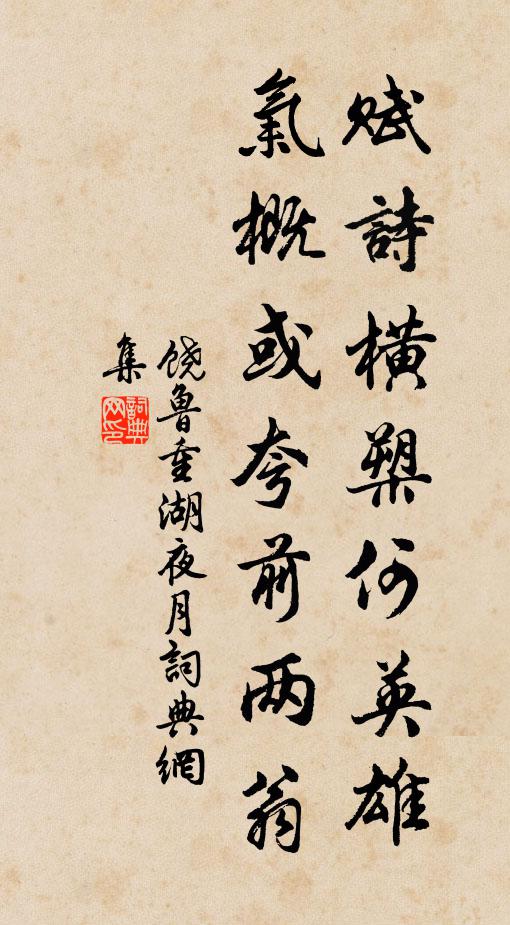 賦詩橫槊何英雄
氣概或夸前两翁
饶魯重湖夜月詞典網
集
詞典网印